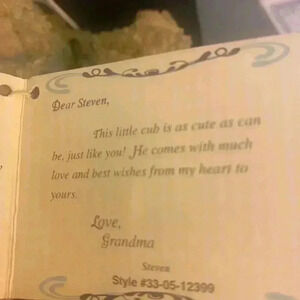 Dear Steven,
This little cub is as cute as can
be, just like you! He comes with much
love and best wishes from my heart to
yours.
Love,
Grandma
Steven
Style #33-05-12399